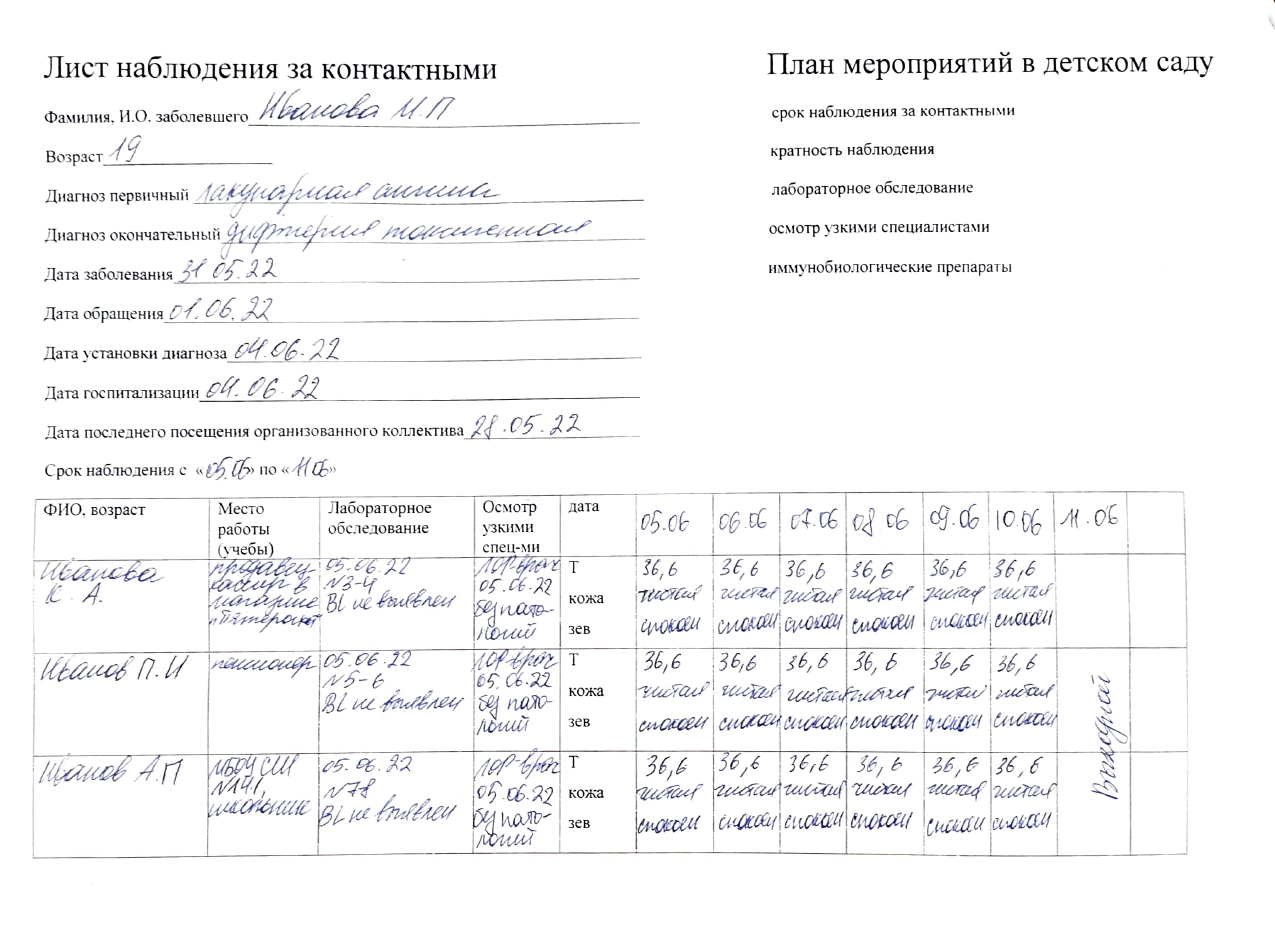 Лист наблюдения за контактными
Фамилия, И.О. заболевшего Иванова И.П
Возраст 19
Диагноз первичный лакунарная ангина
Диагноз окончательный дифтерия токсигенная
Дата заболевания 31 05.22
Дата обращения 01.06.22
Дата установки диагноза 04.06.22
Дата госпитализации 04.06.22
Дата последнего посещения организованного коллектива 28.05.22
Срок наблюдения с «05.06» по «11 06»
План мероприятий в детском саду
срок наблюдения за контактными
кратность наблюдения
лабораторное обследование
осмотр узкими специалистами
иммунобиологические препараты
ФИО, возраст Место работы (учебы) Лабораторное обследование Осмотр узкими спец-ми дата 05.06 06.06 07.06 08 06 09.06 10.06 11.06
Иванова К. А.
продавец-
кассир в
магазине
"Пятерочка"
05.06.22
N3-4
BL не выявлен
ЛОР-врач
05.06.22
без пато-
логий
Т 36,6 36,6 36,6 36,6 36,6 36,6
кожа чистая чистая чистая чистая чистая чистая
зев спокоен спокоен спокоен спокоен спокоен спокоен
Иванов П.И
пенсионер
05.06.22
N5-6
BL не выявлен
ЛОР-врач
05.06.22
без пато-
логий
Т 36,6 36,6 36,6 36,6 36,6 36,6
кожа чистая чистая чистая чистая чистая чистая
зев спокоен спокоен спокоен спокоен спокоен спокоен
Иванов А.П
МБОУ СШ
N141,
школьник
05.06.22
N78
BL не выявлен
ЛОР-врач
05.06.22
без пато-
логий
Т 36,6 36,6 36,6 36,6 36,6 36,6
кожа чистая чистая чистая чистая чистая чистая
зев спокоен спокоен спокоен спокоен спокоен спокоен
Выходной